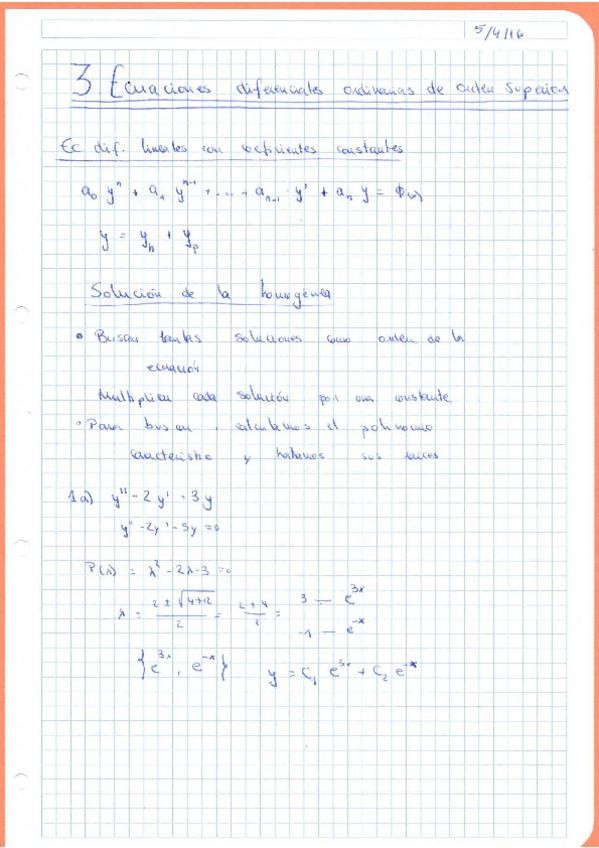 5/4/16
3 Ecuaciones diferenciales ordinarias de orden superior
Ec dif. lineales con coeficientes constantes
a₀ yⁿ + a₁ yⁿ⁻¹ + ... + aₙ₋₁ y' + aₙ y = ϕ(x)
y = y_h + y_p
Solución de la homogénea
• Buscar tantas soluciones como orden de la
ecuación
Multiplicar cada solución por una constante
• Para buscar, calculamos el polinomio
característico y hallamos sus raices
1a) y'' - 2y' = 3y
y'' - 2y' - 3y = 0
P(λ) = λ² - 2λ - 3 = 0
λ = (2 ± √(4+12))/2 = (2 ± 4)/2 = 3 — e^{3x}
-1 — e^{-x}
{e^{3x}, e^{-x}} y = C₁ e^{3x} + C₂ e^{-x}